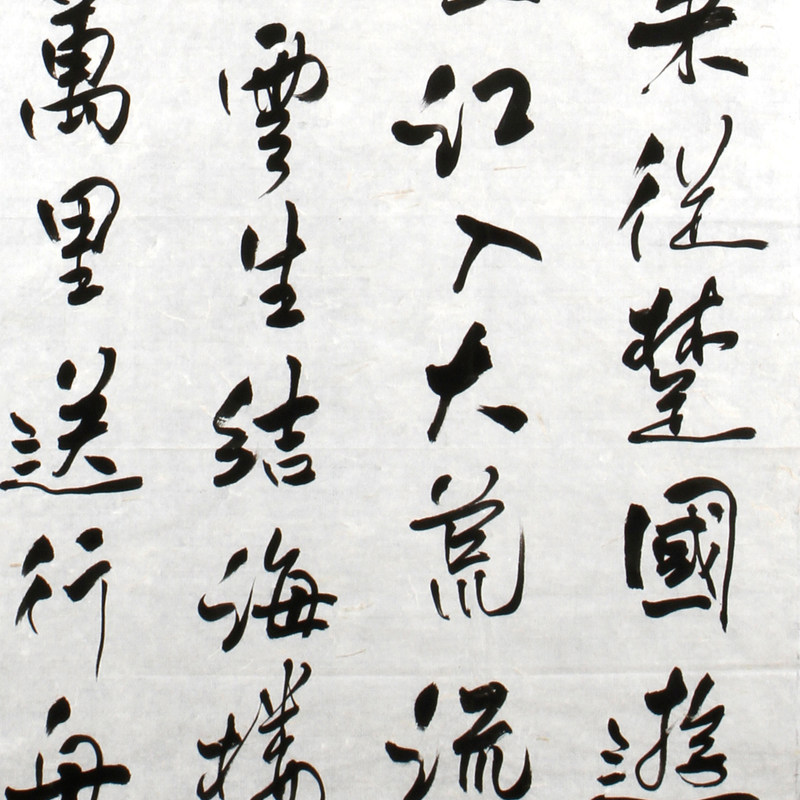 来從楚國遊
江入大荒流
雲生結海楼
萬里送行舟